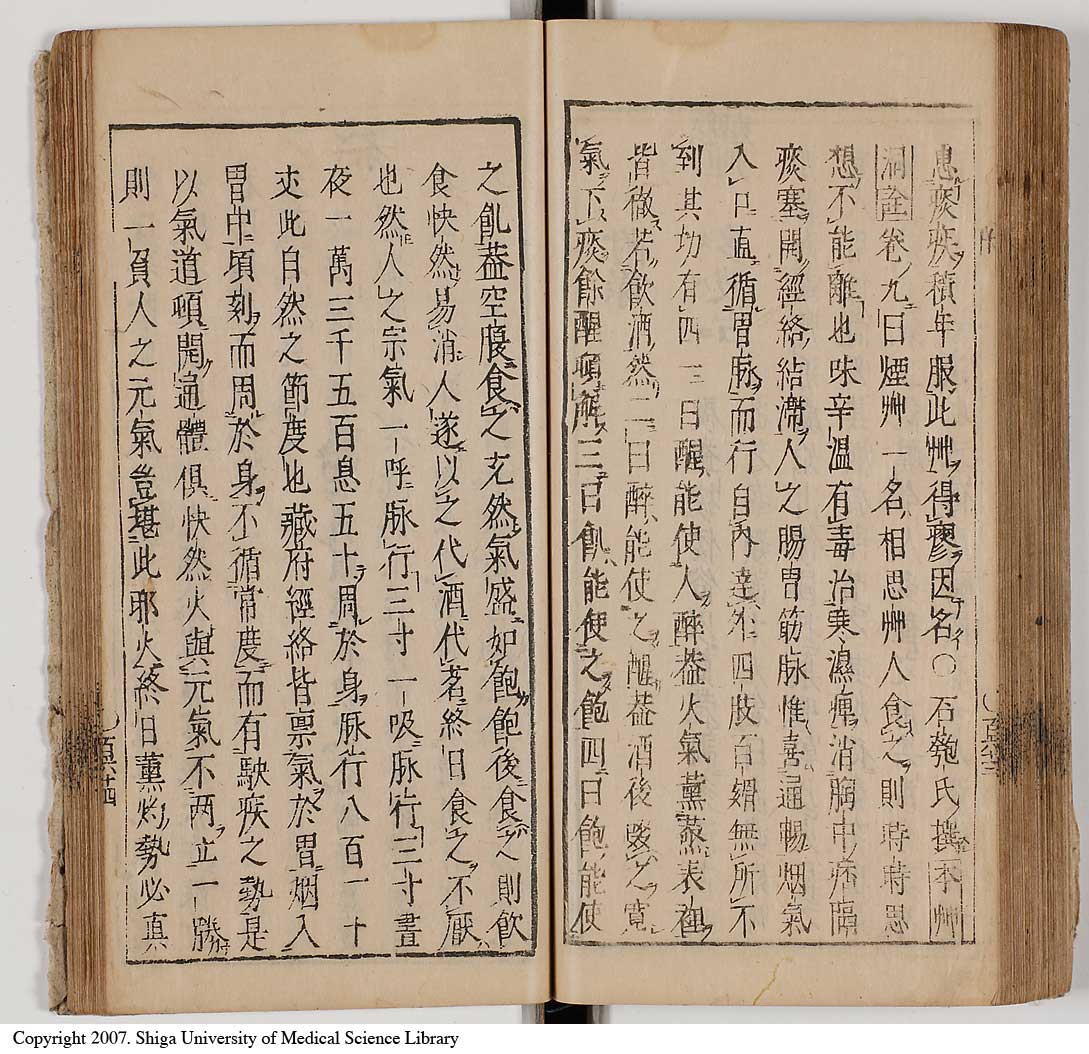 患痰疾積年服此艸得瘳因名〇石匏氏撰本艸
洞詮卷九曰煙艸一名相思艸人食之則時時思
想不能離也味辛溫有毒治寒濕痺消胸中痞隔
痰塞開經絡結滯人之腸胃筋脉惟喜通暢烟氣
入口直循胃脉而行自內達外四肢百骸無所不
到其功有四一曰醒能使人醉蓋火氣薰蒸表裡
皆徹若飲酒然二曰醉能使之醒蓋酒後啜之寬
氣下痰餘酲頓解三曰飢能使之飽四曰飽能使
之飢蓋空腹食之充然氣盛如飽飽後食之則飲
食快然易消人遂以之代酒代茗終日食之不厭
也然人之宗氣一呼脉行三寸一吸脉行三寸晝
夜一萬三千五百息五十周於身脉行八百一十
丈此自然之節度也藏府徑絡皆禀氣於胃烟入
胃中頃刻而周於身不循常度而有駛疾之勢是
以氣道頓開通體俱快然火與元氣不两立一勝
則一負人之元氣豈堪此邪火終日薰灼勢必真
Copyright 2007. Shiga University of Medical Science Library